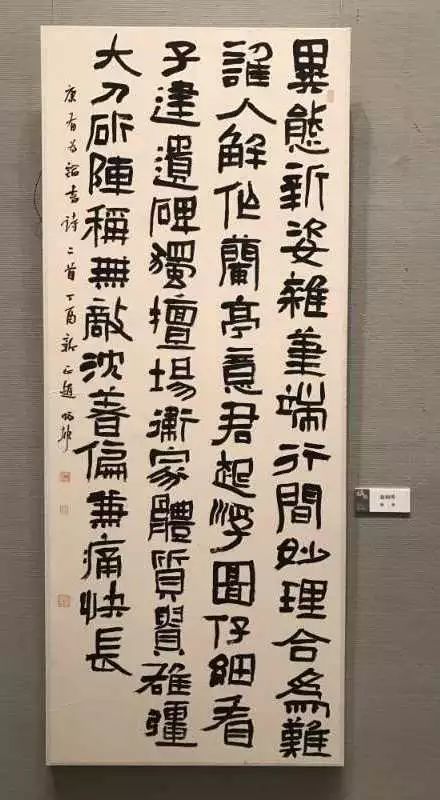 異態新姿雜筆端行間妙理合為難
誰人解作蘭亭意君起浮圖仔細看
子建遺碑獨擅場衛家體質實雄彊
大刀斫陣稱無敵沈著偏兼痛快長
康有為論書詩二首丁酉新正趙